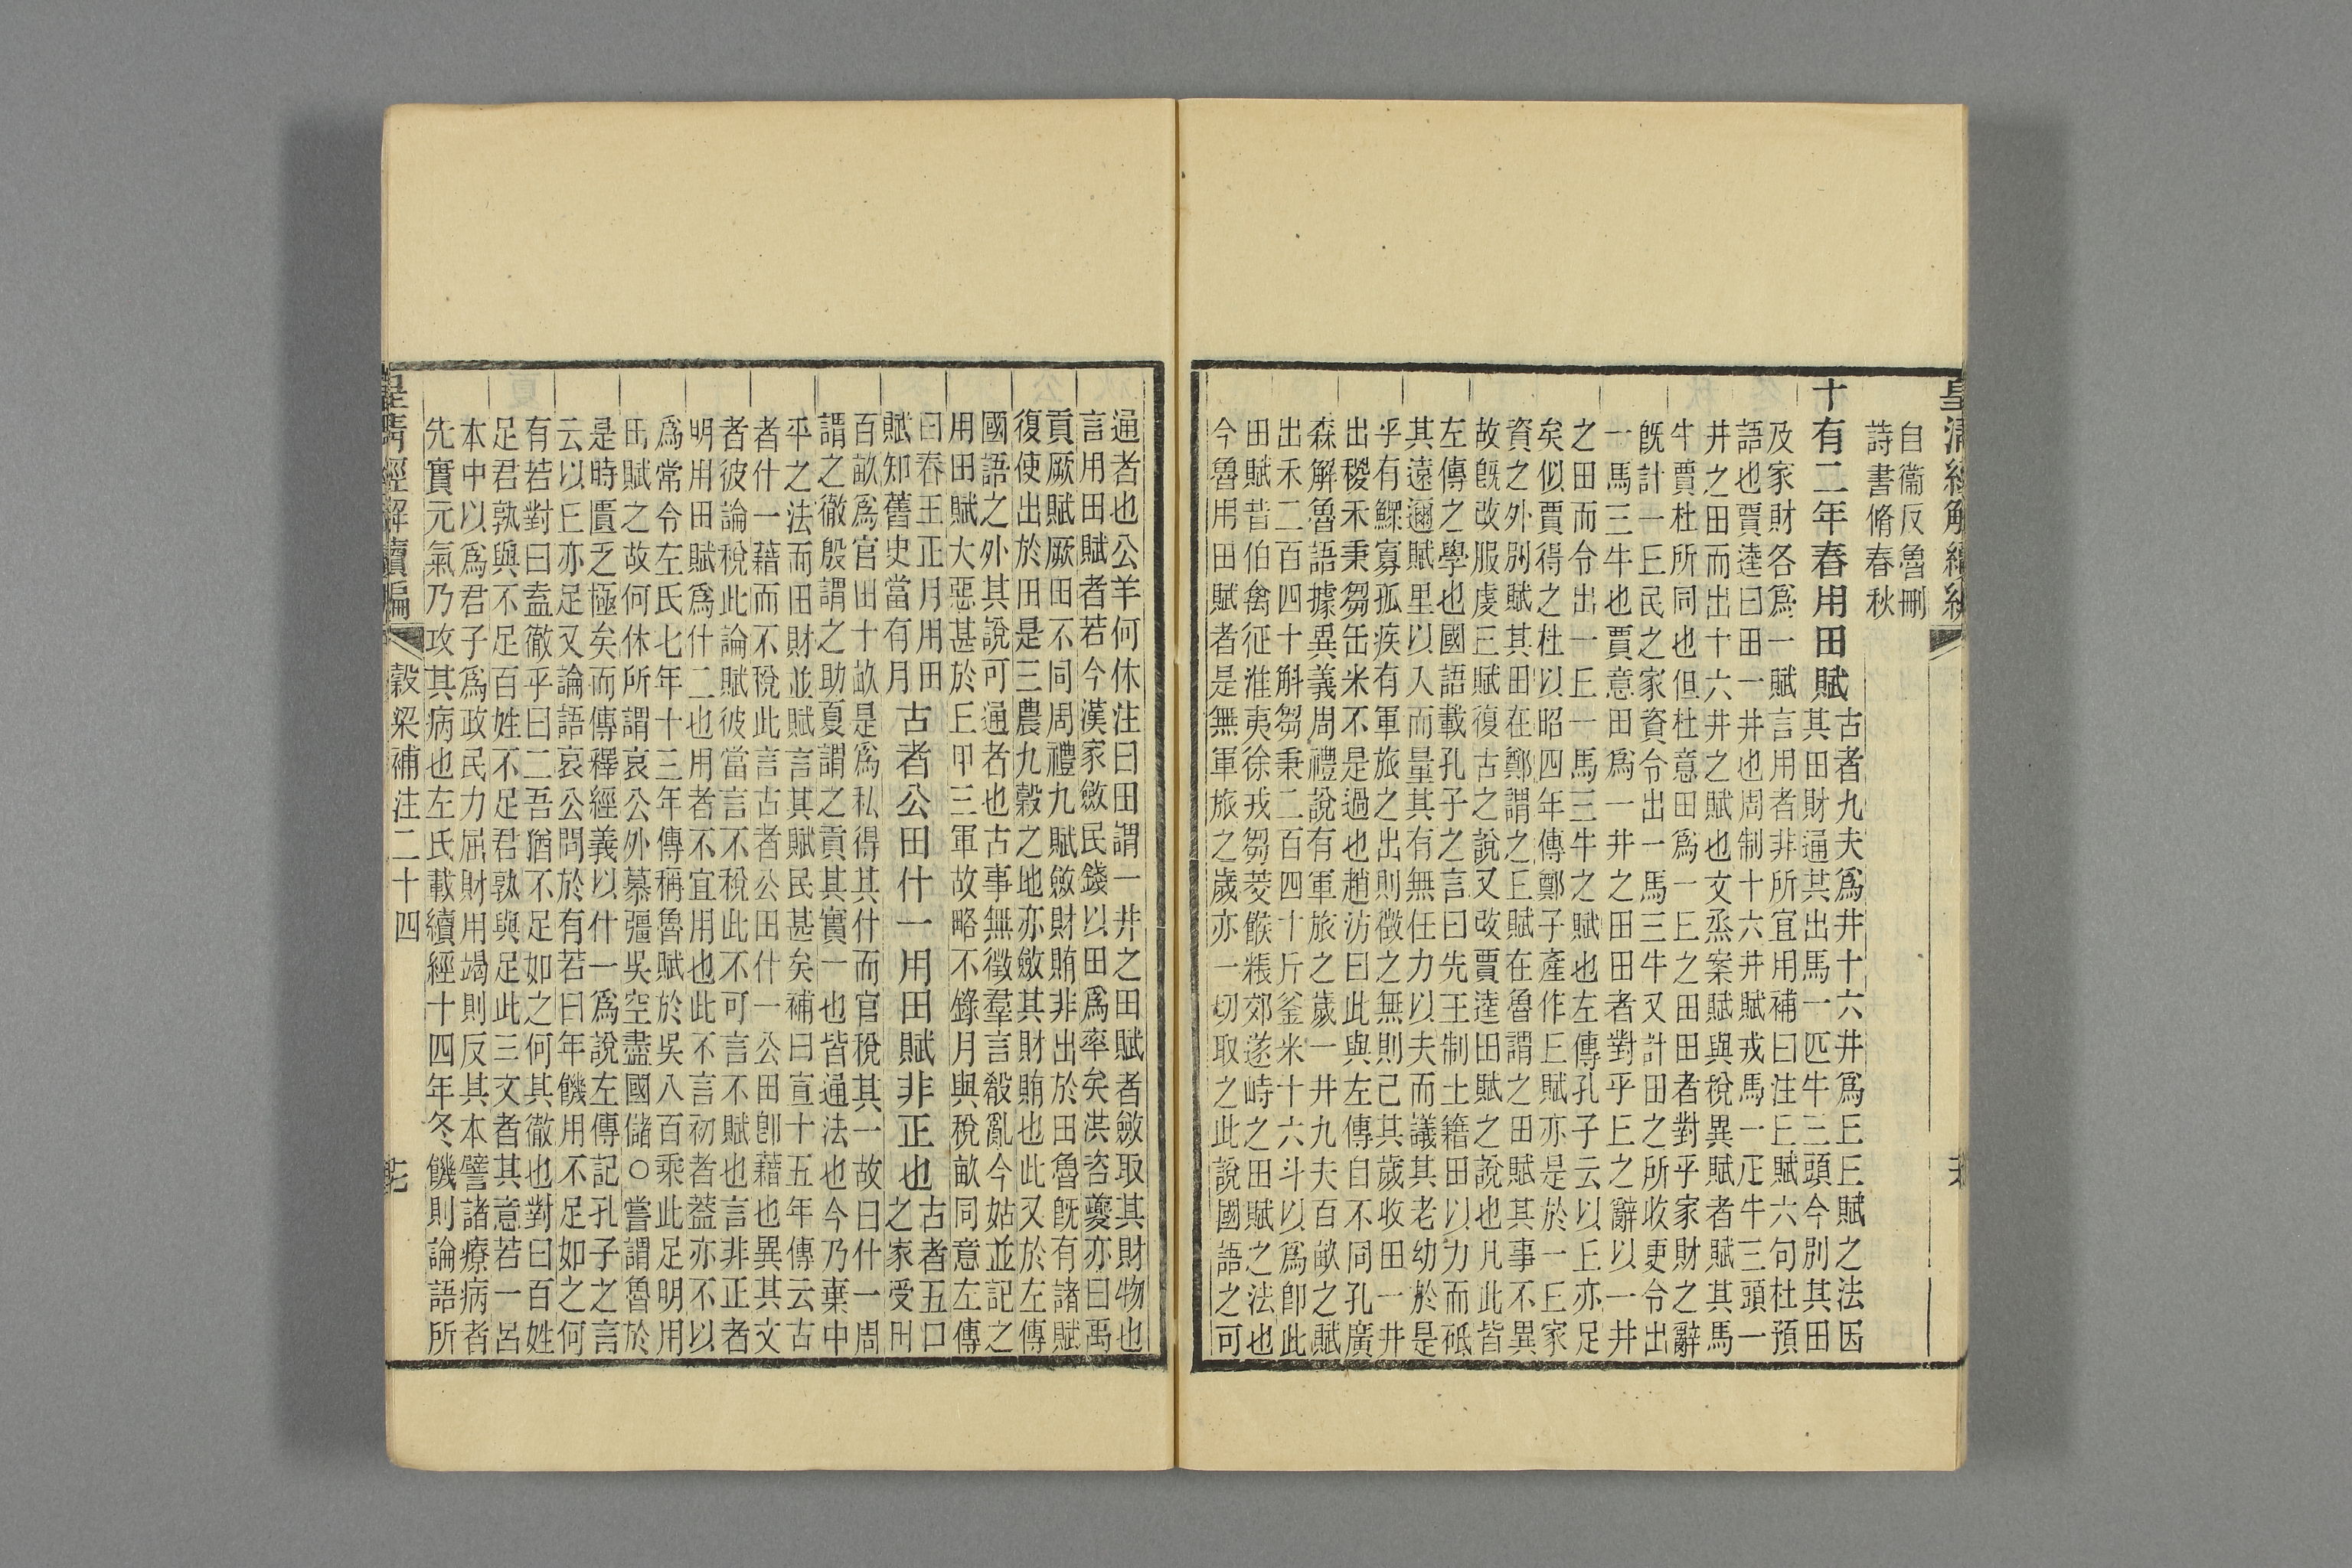 皇清經解續編
自衞反魯刪
詩書脩春秋
十有二年春用田賦
古者九夫爲井十六井爲丘丘賦之法因
其田財通其出馬一匹牛三頭今別其田
及家財各爲一賦言用者非所宜用補曰注丘賦六句杜預
語也賈逵曰田一井也周制十六井賦戎馬一匹牛三頭一
井之田而出十六井之賦也文烝案賦與稅異賦者賦其馬
牛賈杜所同也但杜意田爲一丘之田田者對乎家財之辭
旣計一丘民之家資令出一馬三牛又計田之所收更令出
一馬三牛也賈意田爲一井之田田者對乎丘之辭以一井
之田而令出一丘一馬三牛之賦也左傳孔子云以丘亦足
矣似賈得之杜以昭四年傳鄭子產作丘賦亦是於一丘家
資之外別賦其田在鄭謂之丘賦在魯謂之田賦其事不異
故旣改服虔三賦復古之說又改賈逵田賦之說也凡此皆
左傳之學也國語載孔子之言曰先王制土籍田以力而砥
其遠邇賦里以入而量其有無任力以夫而議其老幼於是
乎有鰥寡孤疾有軍旅之出則徵之無則已其歲收田一井
出稷禾秉芻缶米不是過也趙汸曰此與左傳自不同孔廣
森解魯語據異義周禮說有軍旅之歲一井九夫百畝之賦
出禾二百四十斛芻秉二百四十斤釜米十六斗以爲卽此
田賦昔伯禽征淮夷徐戎芻茭餱糗郊遂峙之田賦之法也
今魯用田賦者是無軍旅之歲亦一切取之此說國語之可
通者也公羊何休注曰田謂一井之田賦者斂取其財物也
言用田賦者若今漢家斂民錢以田爲率矣洪咨夔亦曰禹
貢厥賦厥田不同周禮九賦斂財賄非出於田魯旣有諸賦
復使出於田是三農九穀之地亦斂其財賄也此又於左傳
國語之外其說可通者也古事無徵羣言殽亂今姑並記之
用田賦大惡甚於丘甲三軍故略不錄月與稅畝同意左傳
曰春王正月用田
賦知舊史當有月
古者公田什一用田賦非正也
古者五口
之家受田
百畝爲官田十畝是爲私得其什而官稅其一故曰什一周
謂之徹殷謂之助夏謂之貢其實一也皆通法也今乃棄中
平之法而田財並賦言其賦民甚矣補曰宣十五年傳云古
者什一藉而不稅此言古者公田什一公田卽藉也異其文
者彼論稅此論賦彼當言不稅此不可言不賦也言非正者
明用田賦爲什二也用者不宜用也此不言初者蓋亦不以
爲常令左氏七年十三年傳稱魯賦於吳八百乘此足明用
田賦之故何休所謂哀公外慕彊吳空盡國儲○嘗謂魯於
是時匱乏極矣而傳釋經義以什一爲說左傳記孔子之言
云以丘亦足又論語哀公問於有若曰年饑用不足如之何
有若對曰盍徹乎曰二吾猶不足如之何其徹也對曰百姓
足君孰與不足百姓不足君孰與足此三文者其意若一呂
本中以爲君子爲政民力屈財用竭則反其本譬諸療病者
先實元氣乃攻其病也左氏載續經十四年冬饑則論語所
皇清經解續編
穀梁補注二十四